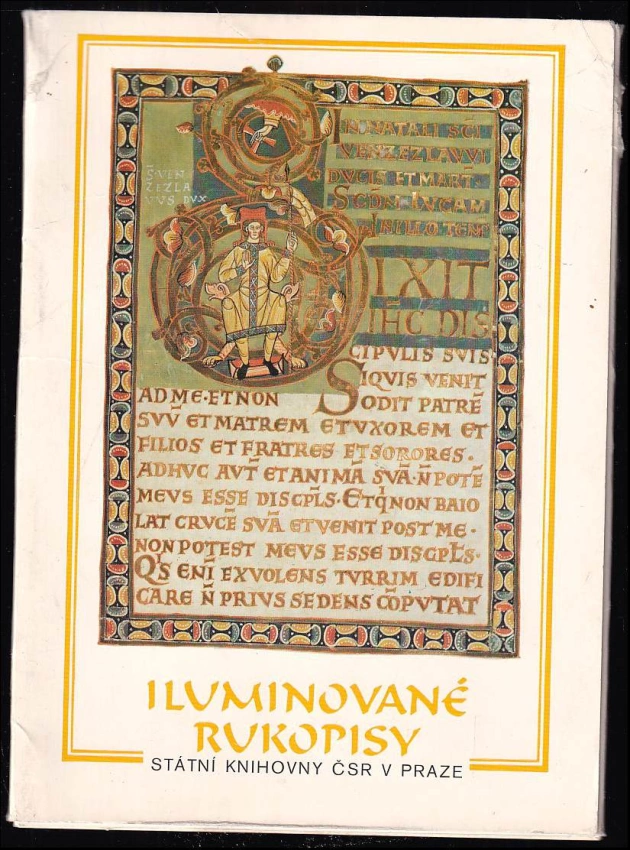 S̄·VEN
ZEZLA
VVS DVX
IN NATALI S̄C̄I
VENZEZLAVVI
DVCIS ET MART̄
IXIT
IH̄C DIS
CIPVLIS SVIS
SIQVIS VENIT
AD ME·ET NON ODIT PATRĒ
SVV̄ ET MATREM ET VXOREM ET
FILIOS ET FRATRES ET SORORES·
ADHVC AVT̄ ET ANIMĀ SVĀ·N̄ POTĒ
MEVS ESSE DISCPL̄S·ET Q̄I NON BAIO
LAT CRVCĒ SVĀ ET VENIT POST ME·
NON POTEST MEVS ESSE DISCPL̄S·
Q̄S ENĪ EX VOLENS TVRRIM EDIFI
CARE N̄ PRIVS SEDENS CŌPVTAT
ILUMINOVANÉ
RUKOPISY
STÁTNÍ KNIHOVNY ČSR V PRAZE